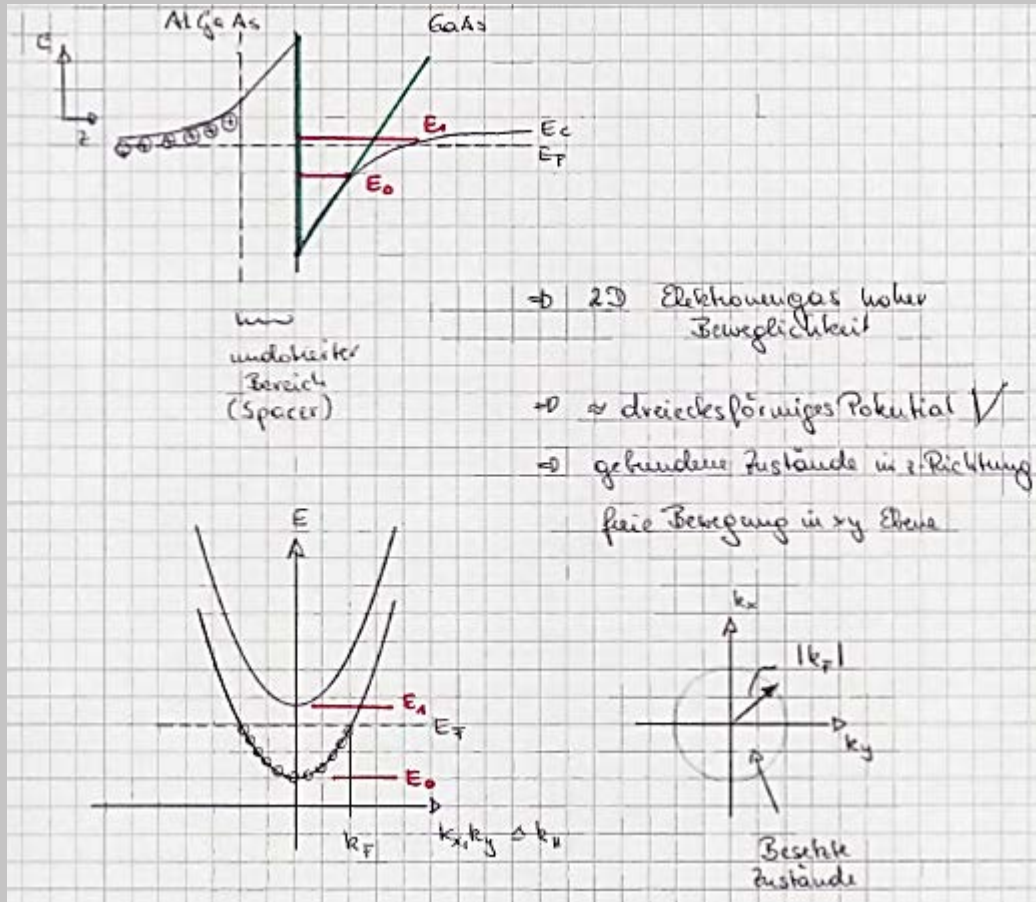 AlGaAs
GaAs
E
z
E₁
E_c
E_F
E₀
undotierter
Bereich
(Spacer)
⇒ 2D Elektronengas hoher
Beweglichkeit
⇒ ≈ dreiecksförmiges Potential V
⇒ gebundene Zustände in z-Richtung
freie Bewegung in xy Ebene
E
E₁
E_F
E₀
k_F
k_x, k_y ≙ k_∥
k_x
|k_F|
k_y
Besetzte
Zustände